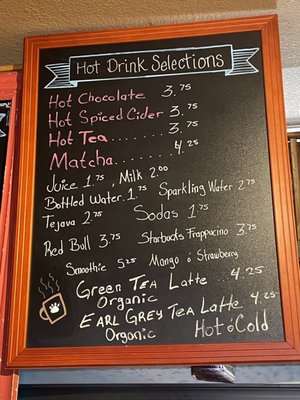 Hot Drink Selections
Hot Chocolate 3.75
Hot Spiced Cider 3.75
Hot Tea........ 3.75
Matcha....... 4.25
Juice 1.75, Milk 2.00
Bottled Water. 1.75 Sparkling Water 2.75
Tejava 2.75 Sodas 1.75
Red Bull 3.75 Starbucks Frappucino 3.75
Smoothie 5.25 Mango ó Strawberry
Green Tea Latte 4.25
Organic
Earl Grey Tea Latte 4.25
Organic Hot ó Cold